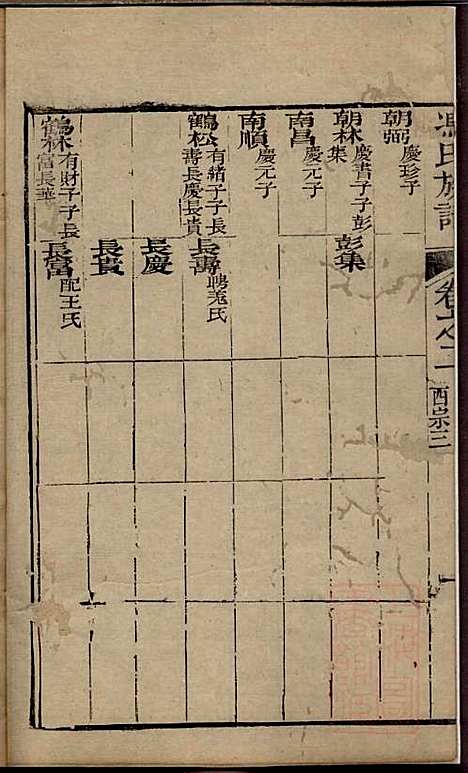 馮氏族譜
卷之二
西宗三
朝弼 慶珍子
朝林 慶書子子彭集
彭集
南昌 慶元子
南順 慶元子
鶴松 有緒子子長壽長慶長貴
長壽 聘羗氏
長慶
長貴
鶴林 有財子子長富長華
長富 配王氏